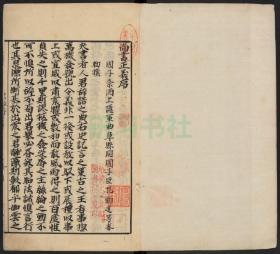 尚書正義序
國子祭酒上護軍曲阜縣開國子臣孔穎達奉
勑撰
夫書者人君辭誥之典右史記言之策古之王者事揔
萬機發號出令義非一揆或設教以馭下或展禮以事
上或宣威以肅震曜或敷和而散風雨得之則百度惟
貞失之則千里斯謬樞機之發榮辱之主絲綸之動不
可不慎所以辭不苟出君舉必書欲其昭法誡慎言行
也其泉源所漸基於出震之君黼藻斯彰郁乎如雲之